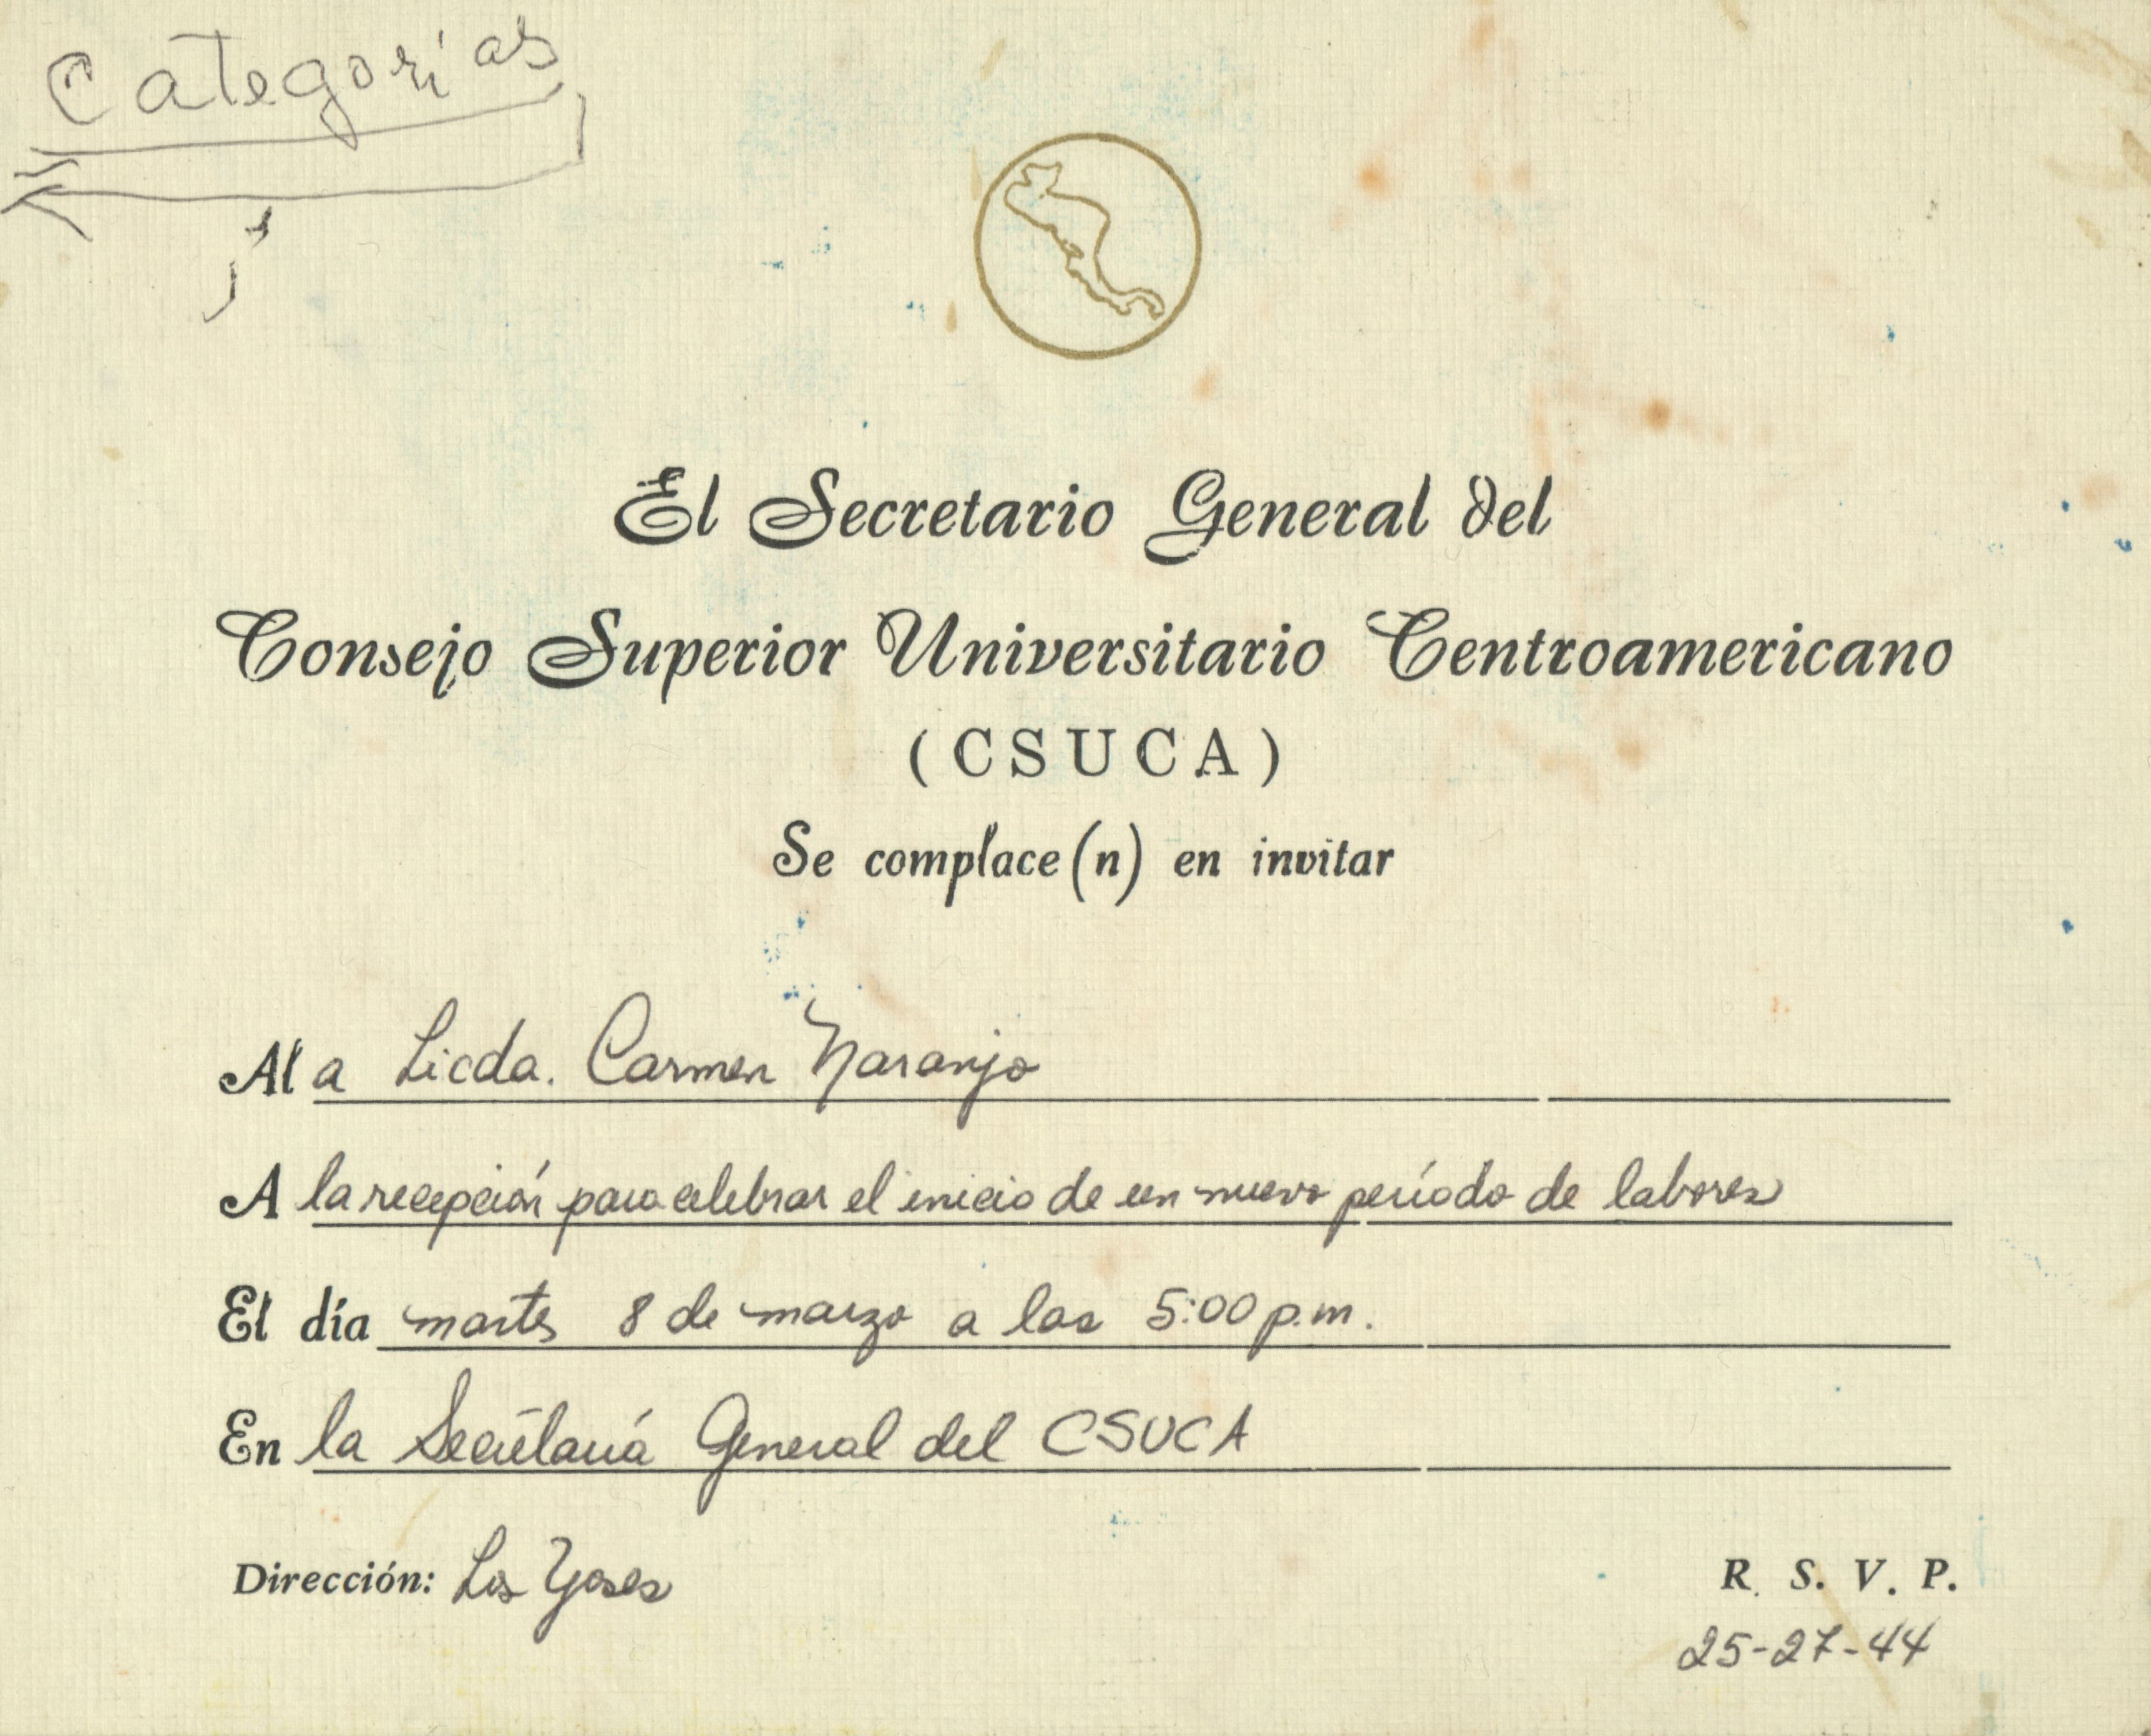 Categorias
El Secretario General del
Consejo Superior Universitario Centroamericano
(CSUCA)
Se complace(n) en invitar
Al a Licda. Carmen Naranjo
A la recepción para celebrar el inicio de un nuevo período de labores
El día martes 8 de marzo a las 5:00 p.m.
En la Secretaría General del CSUCA
Dirección: Los Yoses
R. S. V. P.
25-27-44